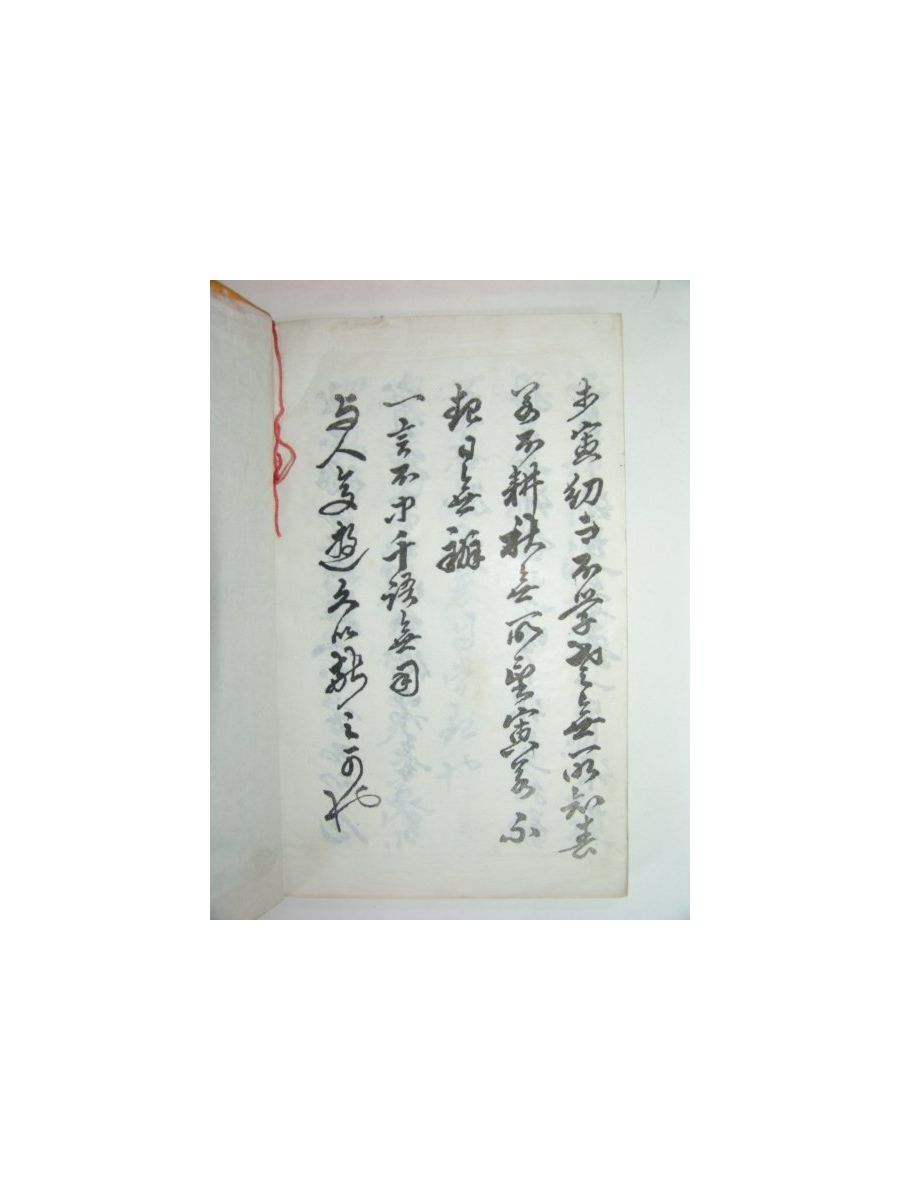 於寅幼而不學老無所知春
若不耕秋無所望寅若不
起日無辦
一言不中千語無用
与人交遊久以敬之可也